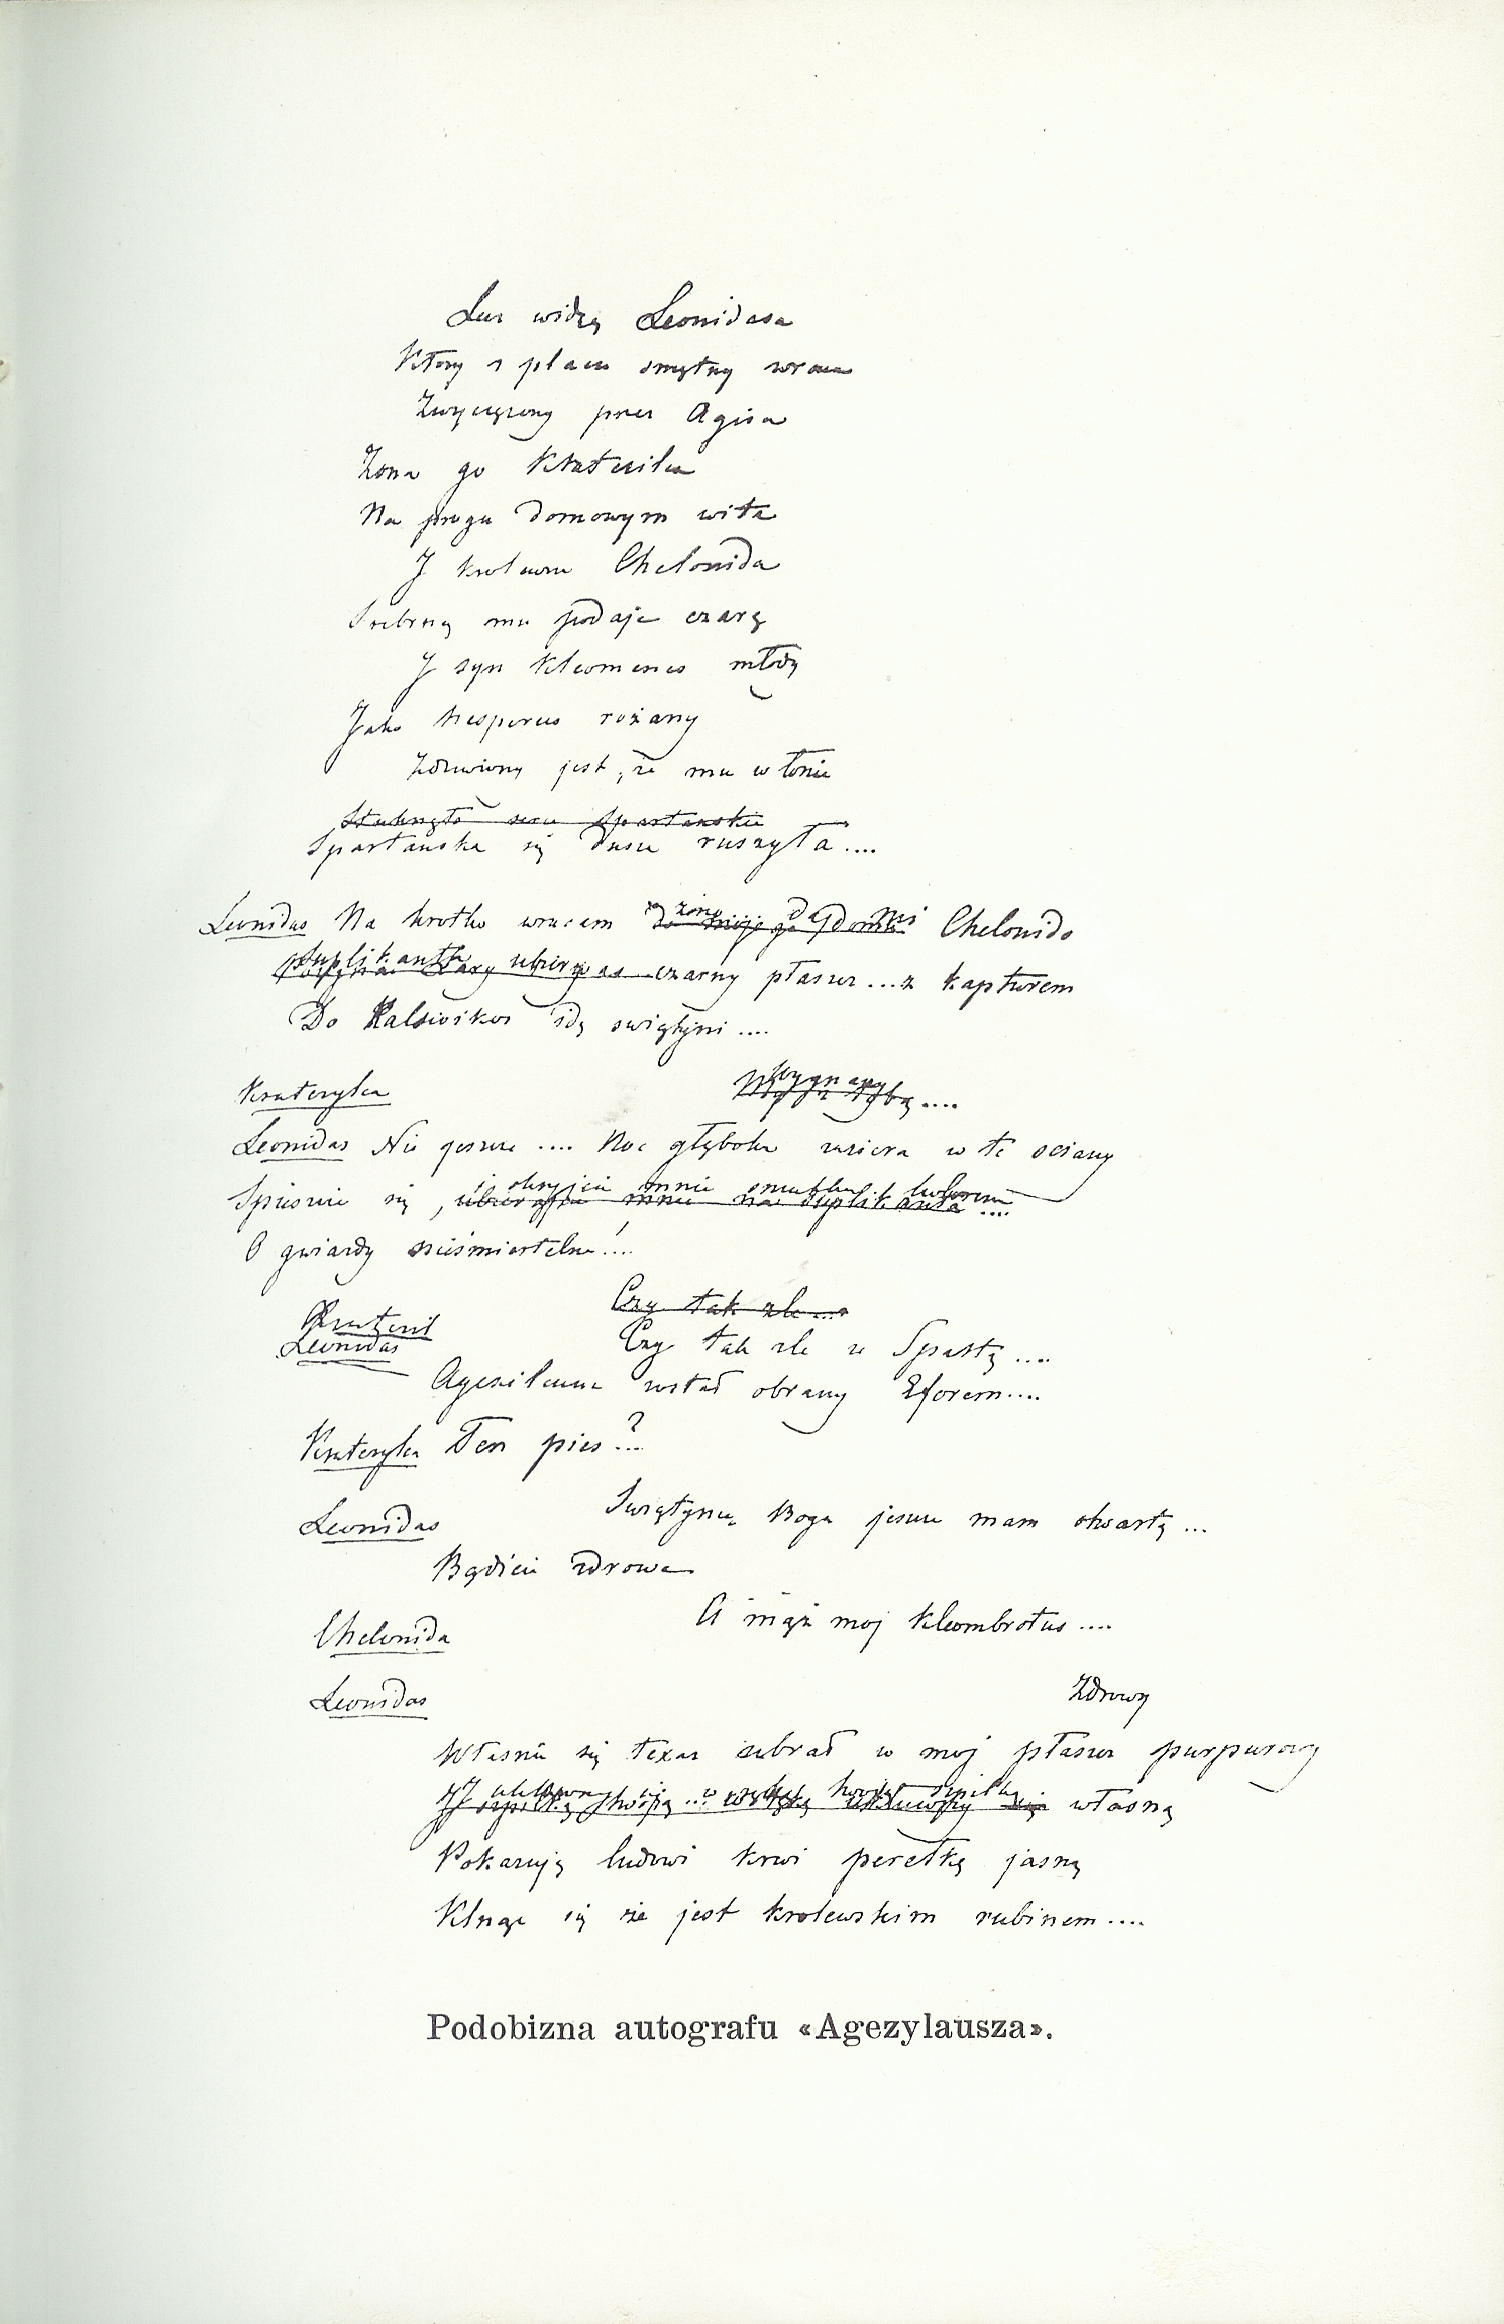 Lecz widzę Leonidasa
Ktory z placu smętny wraca
Zwyciężony przez Agisa
Żona go Kratezilea
Na progu domowym wita
I krolewna Chelonida
Srebrną mu podaje czarę
I syn Kleomenes młody
Jako hesperus rożany
Zdziwiony jest, że mu w łonie
serce Spartańskie
Spartańska się dusza ruszyła....
Leonidas Na krotko wracam żono daj mi Chelonido
Suplikanta czarny płaszcz... z kapturem
Do Kalsioikos idę swiątyni....
Kratezylea Wygnany....
Leonidas Nie jeszcze.... Noc głęboka zaziera w te sciany
Spieszcie się, okryjcie mnie smutku kolorem....
O gwiazdy nieśmiertelne!...
Czy tak zle....
Kratezil
Leonidas Czy tak zle ze Spartą....
Agezilausz został obrany Eforem....
Kratezylea Ten pies?...
Leonidas Swiątynię Boga jeszcze mam otwartą...
Bądźcie zdrowe
Chelonida A mąż moj Kleombrotus....
Leonidas Zdrowy
Własnie się teraz ubrał w moj płaszcz purpurowy
I szpilką własną
Pokazuję ludowi krwi perełkę jasną
Klnąc się że jest krolewskim rubinem....
Podobizna autografu «Agezylausza».